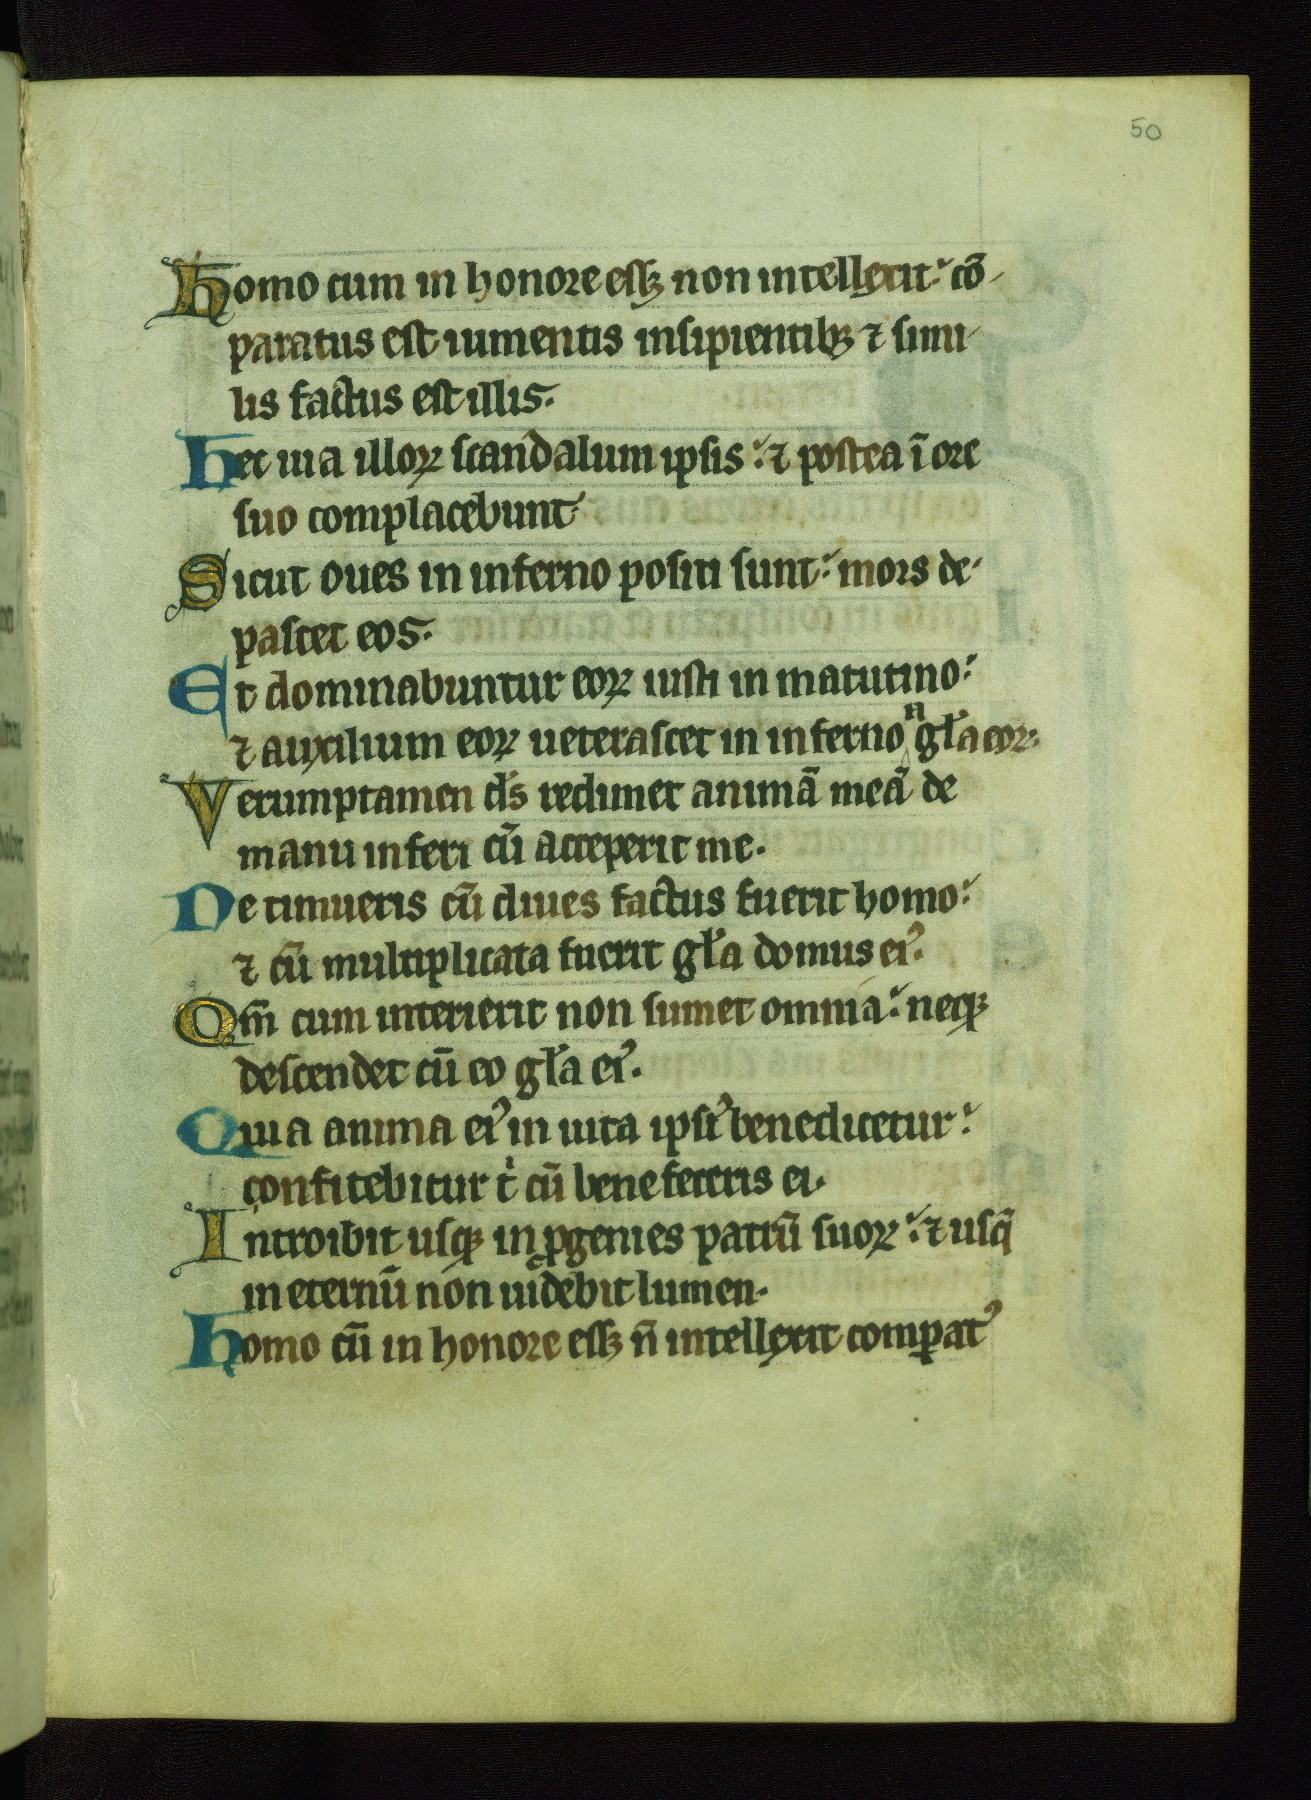 50
Homo cum in honore eſſꝫ non intellexit: cō-
paratus eſt iumentis inſipientibꝫ ⁊ ſimi-
lis factus eſt illis.
Hec uia illoꝝ ſcandalum ipſis: ⁊ poſtea ī ore
ſuo complacebunt.
Sicut oues in inferno poſiti ſunt: mors de-
paſcet eos.
Et dominabuntur eoꝝ iuſti in matutino:
⁊ auxilium eoꝝ ueteraſcet in inferno a gl̓a eoꝝ.
Verumptamen ds̄ redimet animā meā de
manu inferi cū acceperit me.
Ne timueris cū diues factus fuerit homo:
⁊ cū multiplicata fuerit gl̓a domus eiꝰ.
Qm̄ cum interierit non ſumet omnia: neqꝫ
deſcendet cū eo gl̓a eiꝰ.
Quia anima eiꝰ in uita ipſiꝰ benedicetur:
confitebitur tͥ cū benefeceris ei.
Introibit uſqꝫ in ꝓgenies patrū ſuoꝝ: ⁊ uſqꝫ
in eternū non uidebit lumen.
Homo cū in honore eſſꝫ n̄ intellexit comꝑatꝰ